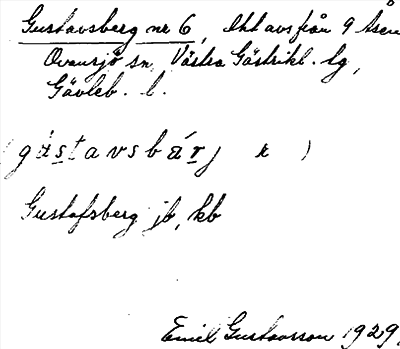 Gustavsberg nr 6, lht avs från 9 Åsen
Ovansjö sn, Västra Gästrikl. tg,
Gävleb. l.
(gustavsbärj r )
Gustafsberg jb, kb
Emil Gustavsson 1929.